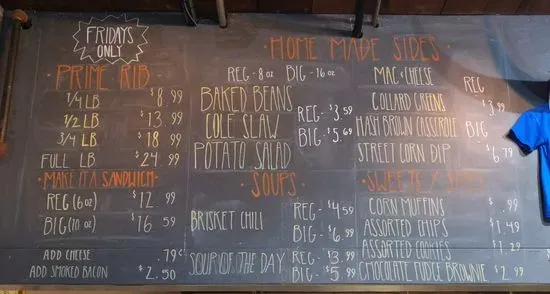 FRIDAYS
ONLY
PRIME RIB
1/4 LB $8.99
1/2 LB $13.99
3/4 LB $18.99
FULL LB $24.99
MAKE IT A SANDWICH
REG (6 oz) $12.99
BIG (10 oz) $16.59
ADD CHEESE .79¢
ADD SMOKED BACON $2.50
HOME MADE SIDES
REG - 8 oz BIG - 16 oz
BAKED BEANS
COLE SLAW
POTATO SALAD
REG - $3.59
BIG - $5.69
MAC & CHEESE
COLLARD GREENS
HASH BROWN CASSEROLE
STREET CORN DIP
REG
$3.99
BIG
$6.79
SOUPS
BRISKET CHILI
REG - $4.59
BIG - $6.99
SOUP OF THE DAY
REG - $3.99
BIG - $5.99
CORN MUFFINS $.99
ASSORTED CHIPS $1.49
ASSORTED COOKIES $1.29
CHOCOLATE FUDGE BROWNIE $2.99